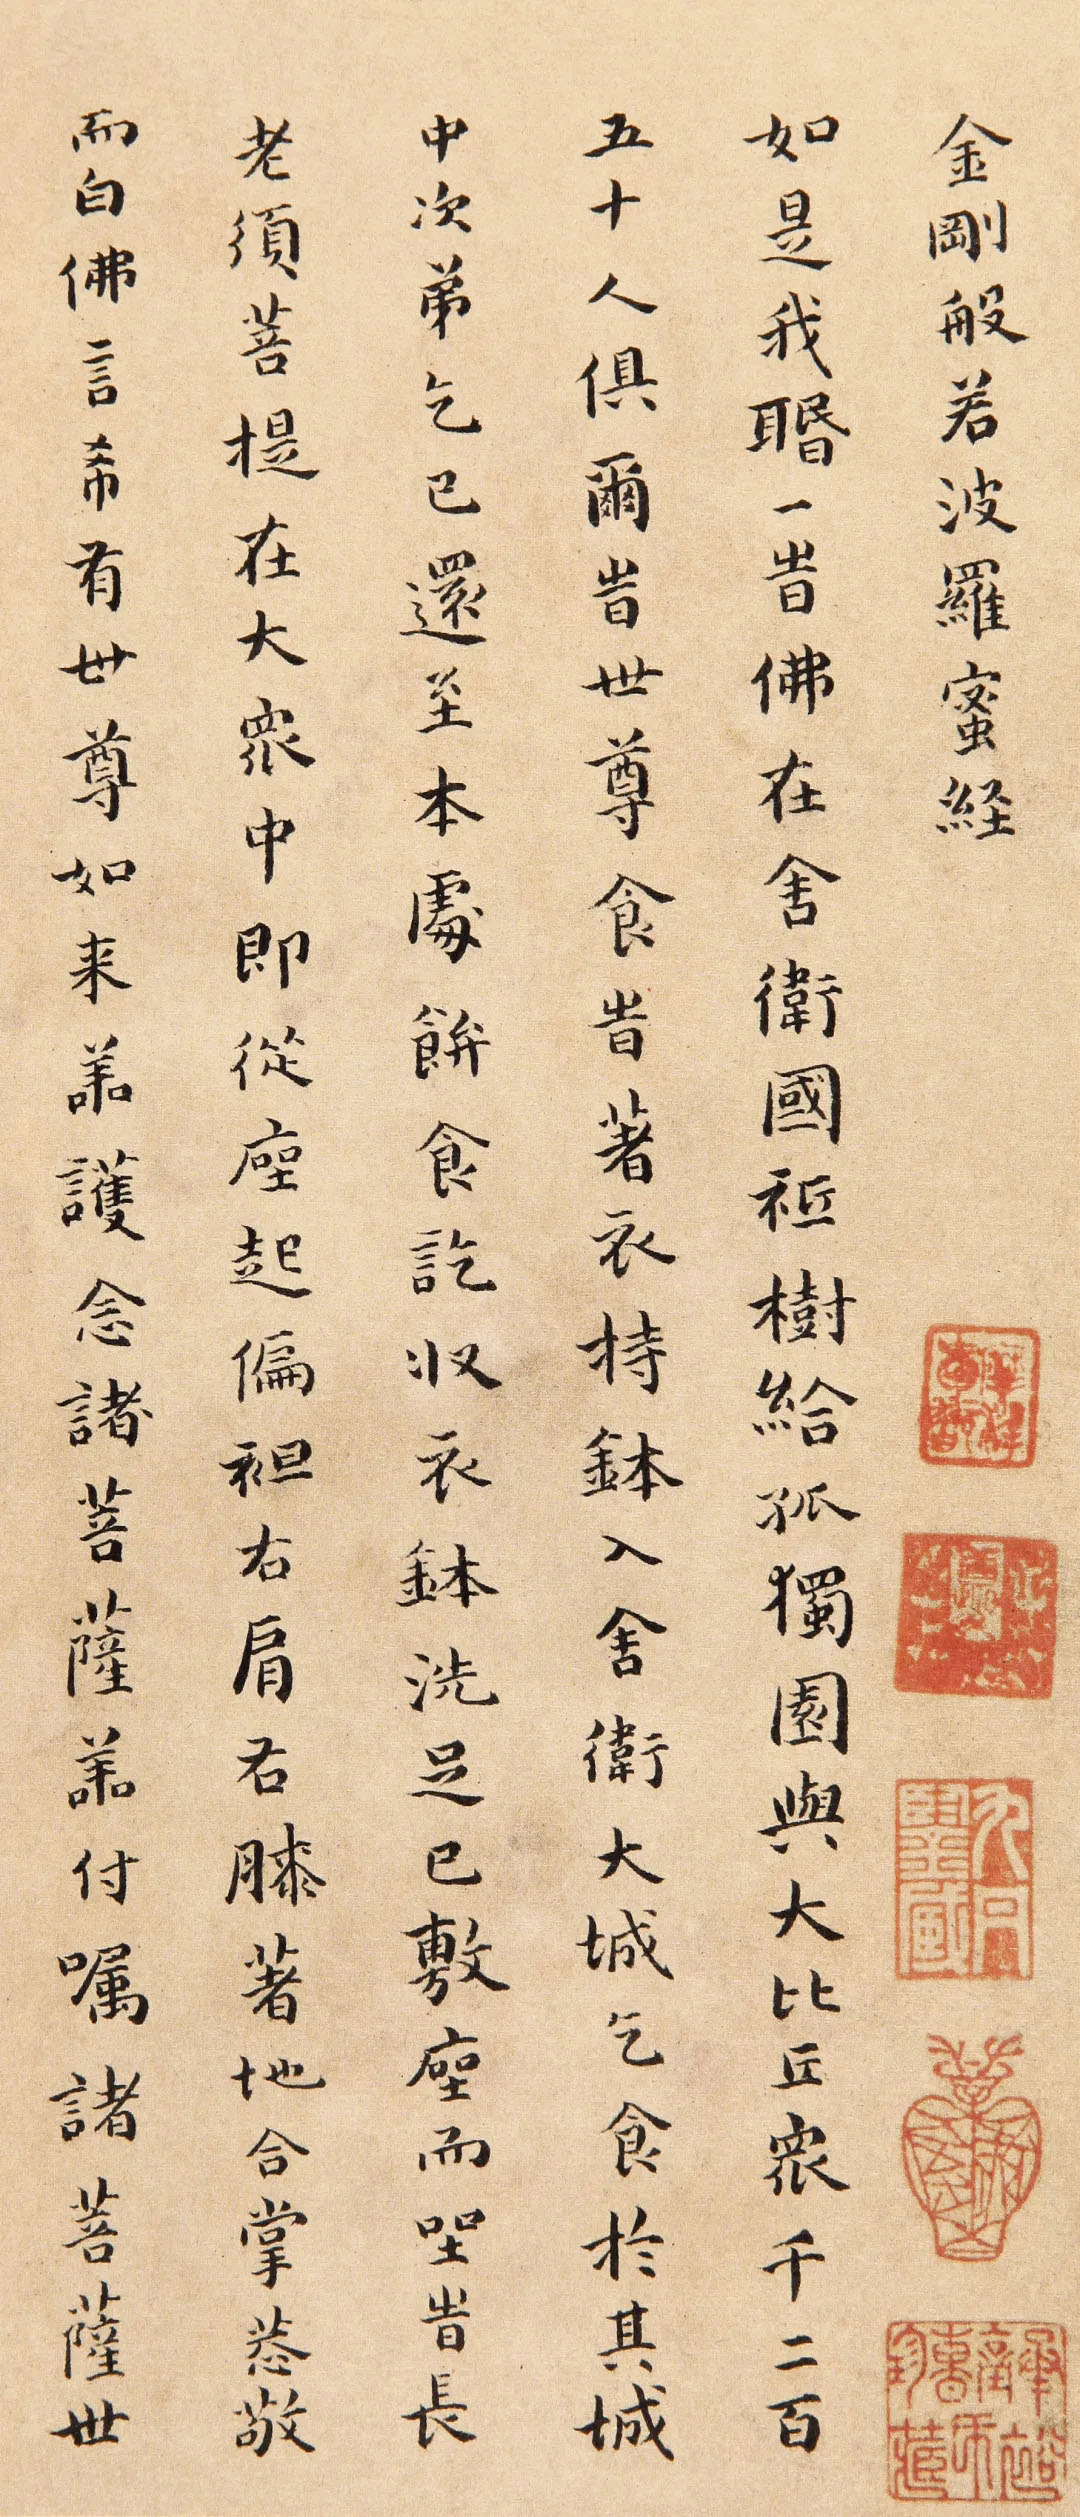 金剛般若波羅蜜経
如是我聞一旹佛在舍衛國祇樹給孤獨園與大比丘眾千二百
五十人俱爾旹世尊食旹著衣持鉢入舍衛大城乞食於其城
中次弟乞已還至本處飯食訖收衣鉢洗足已敷座而坐旹長
老須菩提在大眾中即從座起偏袒右肩右膝著地合掌恭敬
而白佛言希有世尊如来善護念諸菩薩善付嘱諸菩薩世